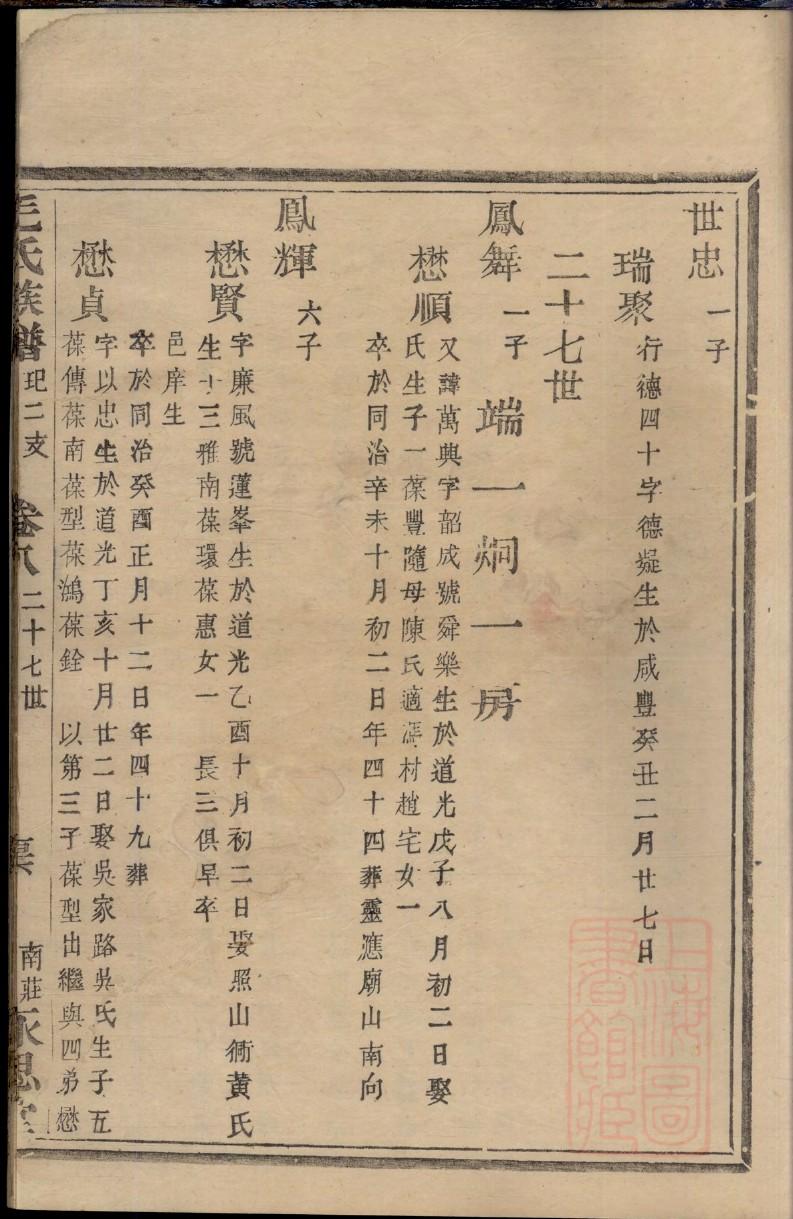 世忠 一子
瑞聚 行德四十字德凝生於咸豐癸丑二月廿七日
二十七世
端一炯一房
鳳舞 一子
懋順 又諱萬興字韶成號舜樂生於道光戊子八月初二日娶
氏生子一葆豐隨母陳氏適馮村趙宅女一
卒於同治辛未十月初二日年四十四葬靈應廟山南向
鳳輝 六子
懋賢 字廉風號蓮峯生於道光乙酉十月初二日娶照山衕黃氏
生十三雅南葆環葆惠女一 長三俱早卒
邑庠生
卒於同治癸酉正月十二日年四十九葬
懋貞 字以忠生於道光丁亥十月廿二日娶吳家路吳氏生子五
葆傳葆南葆型葆鴻葆銓 以第三子葆型出繼與四弟懋
毛氏族譜 玘二支 卷八 二十七世 南莊永思堂
上海圖書館藏